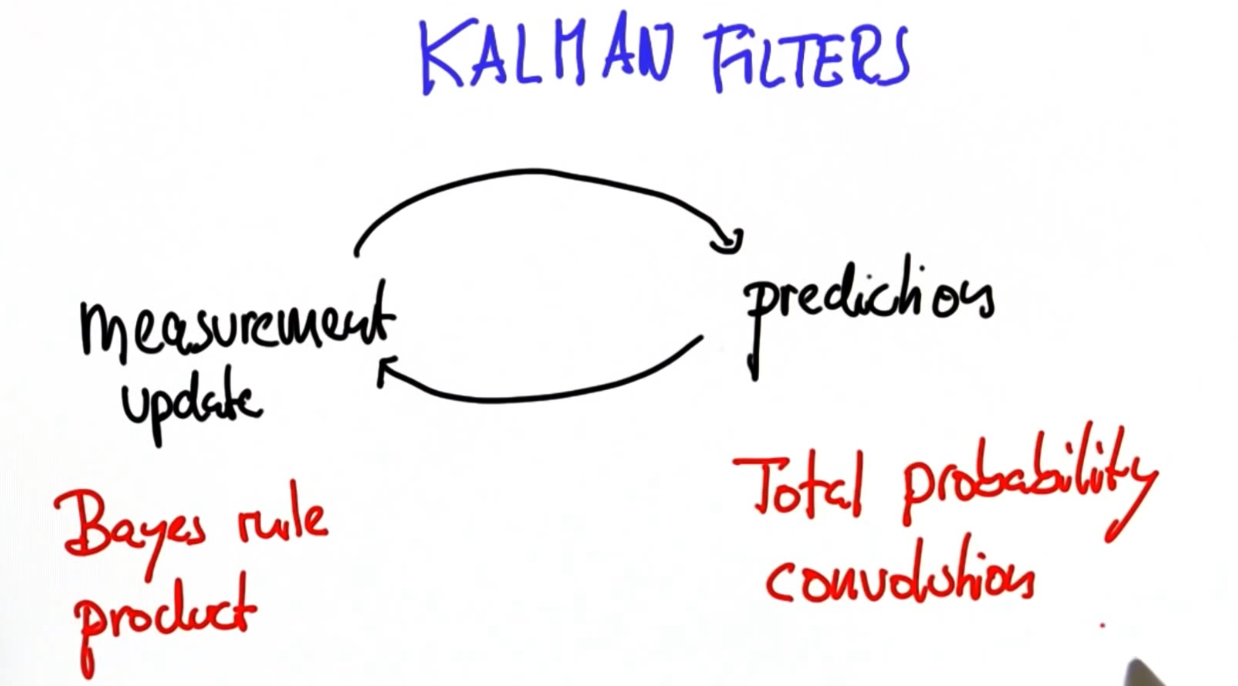 KALMAN FILTERS
measurement
update
prediction
Bayes rule
product
Total probability
convolution